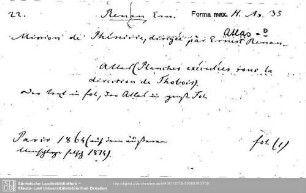 22. Renan Ern. Forma max. H. As. 35
Atlas - 0
Mission de Phénicie, dirigée par Ernest Renan.
Atlas (Planches exécutées sous la
direction de Thobois).
Das Text in fol, der Atlas in groß Fol.
Paris 1864 (auf dem äußeren
Umschlage falsch 1874).
fol (1)
Sächsische Landesbibliothek -
Staats- und Universitätsbibliothek Dresden